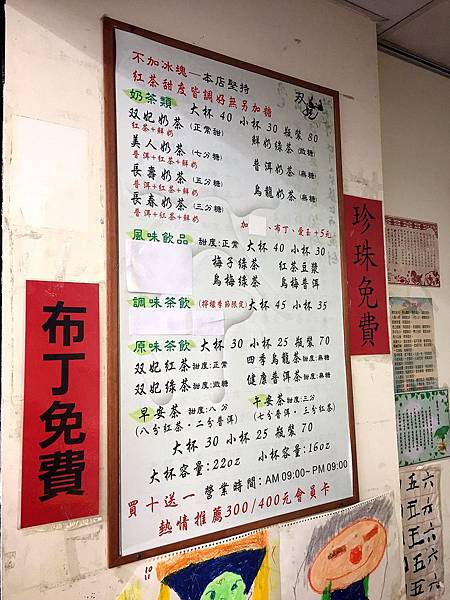 不加冰塊—本店堅持
紅茶甜度皆調好無另加糖
双妃
奶茶類 大杯 40 小杯 30 瓶裝 80
双妃奶茶(正常甜) 鮮奶綠茶(微糖)
紅茶+鮮奶
美人奶茶(七分糖) 普洱奶茶(無糖)
普洱+紅茶+鮮奶
長壽奶茶(五分糖) 烏龍奶茶(無糖)
普洱+紅茶+鮮奶
長春奶茶(三分糖)
普洱+紅茶+鮮奶
加 、布丁、愛玉+5元
風味飲品 甜度:正常 大杯 40 小杯 30
梅子綠茶 紅茶豆漿
烏梅綠茶 烏梅普洱
調味茶飲 (檸檬季節限定)大杯 45 小杯 35
原味茶飲 大杯 30 小杯 25 瓶裝 70
双妃紅茶甜度:正常 四季烏龍茶甜度:無糖
双妃綠茶甜度:微糖 健康普洱茶甜度:無糖
早安茶 甜度:八分 午安茶 甜度:三分
(八分紅茶·二分普洱) (七分普洱·三分紅茶)
大杯 30 小杯 25 瓶裝 70
大杯容量:22oz 小杯容量:16oz
營業時間:AM 09:00~PM 09:00
買十送一 熱情推薦300/400元會員卡
布丁免費
珍珠免費
五 六
五 六
五 六